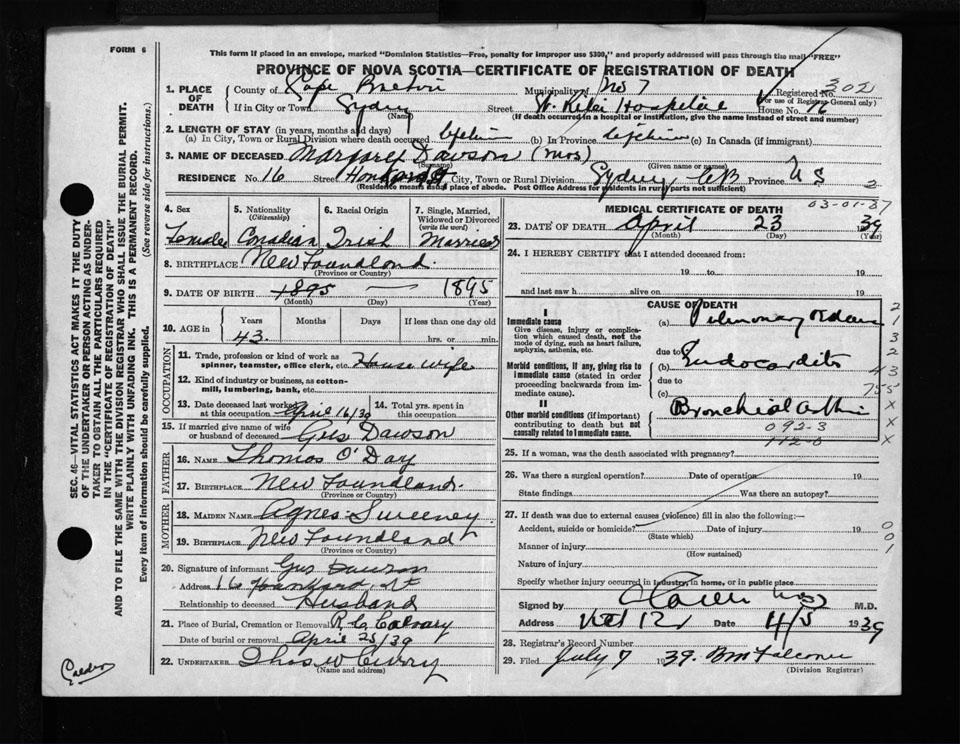 FORM 6
This form if placed in an envelope, marked "Dominion Statistics—Free, penalty for improper use $300," and properly addressed will pass through the mail "FREE"
PROVINCE OF NOVA SCOTIA—CERTIFICATE OF REGISTRATION OF DEATH
1. PLACE OF DEATH
County of Cape Breton Municipality of No 7 Registered No. 302
(For use of Registrar-General only)
If in City or Town Sydney Street Hospital House No. 16
(Name)
(If death occurred in a hospital or institution, give the name instead of street and number)
2. LENGTH OF STAY (in years, months and days)
(a) In City, Town or Rural Division where death occurred lifetime (b) In Province lifetime (c) In Canada (if immigrant)
3. NAME OF DECEASED Margaret Dawson (Mrs)
(Surname) (Given name or names)
RESIDENCE No. 16 Street Hankard St City, Town or Rural Division Sydney CB Province NS 2
(Residence means usual place of abode. Post Office Address for residents in rural parts not sufficient)
4. Sex
Female
5. Nationality
(Citizenship)
Canadian
6. Racial Origin
Irish
7. Single, Married, Widowed or Divorced
(write the word)
Married
8. BIRTHPLACE New Foundland
(Province or Country)
9. DATE OF BIRTH 1895 — 1895
(Month) (Day) (Year)
10. AGE in
Years Months Days If less than one day old
43 hrs. or min.
OCCUPATION
11. Trade, profession or kind of work as spinner, teamster, office clerk, etc. House Wife
12. Kind of industry or business, as cotton-mill, lumbering, bank, etc.
13. Date deceased last worked at this occupation April 16/39
14. Total yrs. spent in this occupation
15. If married give name of wife or husband of deceased Gus Dawson
FATHER
16. NAME Thomas O'Day
17. BIRTHPLACE New Foundland
(Province or Country)
MOTHER
18. MAIDEN NAME Agnes Sweeney
19. BIRTHPLACE New Foundland
(Province or Country)
20. Signature of informant Gus Dawson
Address 16 Hankard St
Relationship to deceased Husband
21. Place of Burial, Cremation or Removal R.C. Calvary
Date of burial or removal April 25/39
22. UNDERTAKER Thos W Curry
(Name and address)
MEDICAL CERTIFICATE OF DEATH
03-01-87
23. DATE OF DEATH April 23 1939
(Month) (Day) (Year)
24. I HEREBY CERTIFY that I attended deceased from:
19 to 19
and last saw h alive on 19
CAUSE OF DEATH
I
Immediate cause
Give disease, injury or complication which caused death, not the mode of dying, such as heart failure, asphyxia, asthenia, etc.
(a) Pulmonary Edema
due to
Morbid conditions, if any, giving rise to immediate cause (stated in order proceeding backwards from immediate cause).
(b) Endocarditis
due to
(c)
II
Other morbid conditions (if important) contributing to death but not causally related to immediate cause.
Bronchial
092-3
112-0
2
1
3
2
43
755
X
X
X
25. If a woman, was the death associated with pregnancy?
26. Was there a surgical operation? Date of operation 19
State findings Was there an autopsy?
27. If death was due to external causes (violence) fill in also the following:—
Accident, suicide or homicide? Date of injury 19
(State which)
Manner of injury
(How sustained)
Nature of injury
Specify whether injury occurred in industry, in home, or in public place
0
0
1
Signed by M.D.
Address Date 4/5 1939
28. Registrar's Record Number
29. Filed July 7 1939. BM Falconer
(Division Registrar)
SEC. 46—VITAL STATISTICS ACT MAKES IT THE DUTY OF THE UNDERTAKER OR PERSON ACTING AS UNDERTAKER TO OBTAIN ALL THE PARTICULARS REQUIRED IN THE "CERTIFICATE OF REGISTRATION OF DEATH" AND TO FILE THE SAME WITH THE DIVISION REGISTRAR WHO SHALL ISSUE THE BURIAL PERMIT.
WRITE PLAINLY WITH UNFADING INK. THIS IS A PERMANENT RECORD.
Every item of information should be carefully supplied. (See reverse side for instructions.)